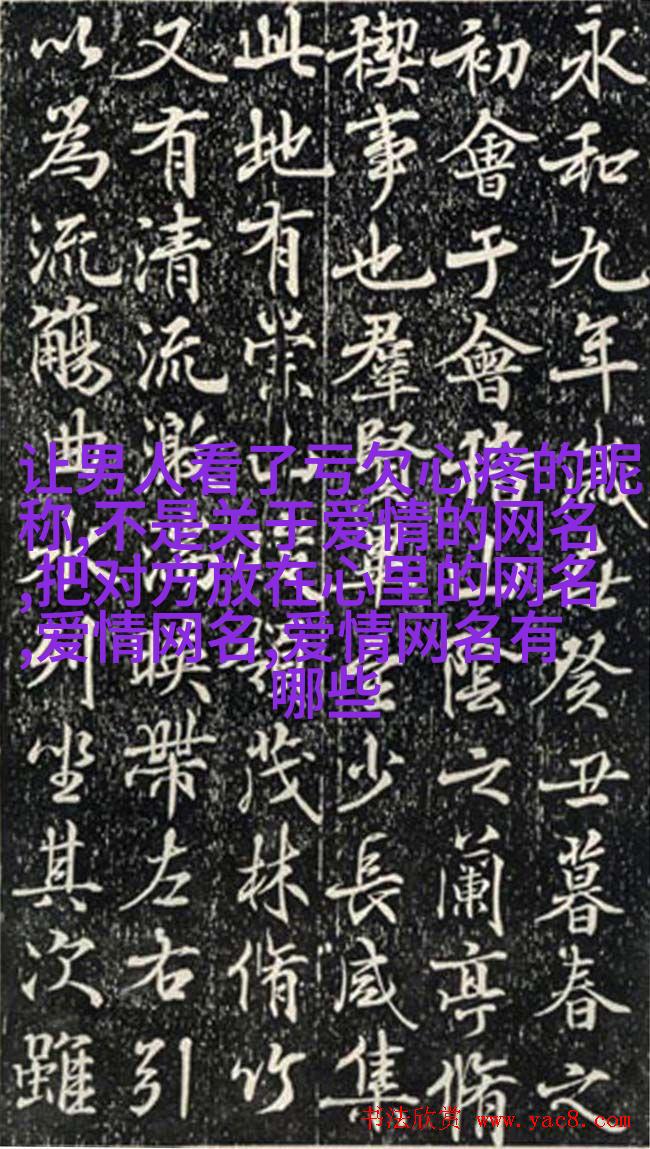 永和九年歲在癸丑暮春之
初會于會稽山陰之蘭亭脩
禊事也羣賢畢至少長咸集
此地有崇山峻領茂林脩竹
又有清流激湍映帶左右引
以為流觴曲水列坐其次雖
让男人看了亏欠心疼的昵
称,不是关于爱情的网名
,把对方放在心里的网名
,爱情网名,爱情网名有
哪些
书法欣赏 www.yac8.com